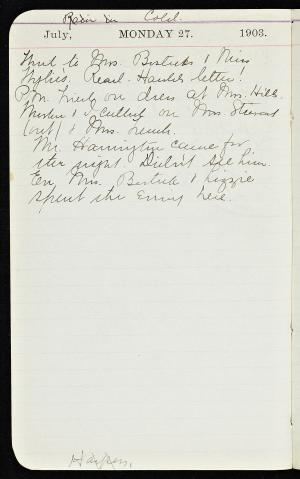 Rain in Cold.
July, MONDAY 27. 1903.
Went to Mrs. Bostick's & Miss
Read letter!
P.M. Tried on dress at Mrs. Hills.
& I called on Mrs. Stewart
(out) & Mrs.
Mr. Harrington came for
the night. Didn't see him.
Ev. Mrs. Bostick & Lizzie
spent the evning here.